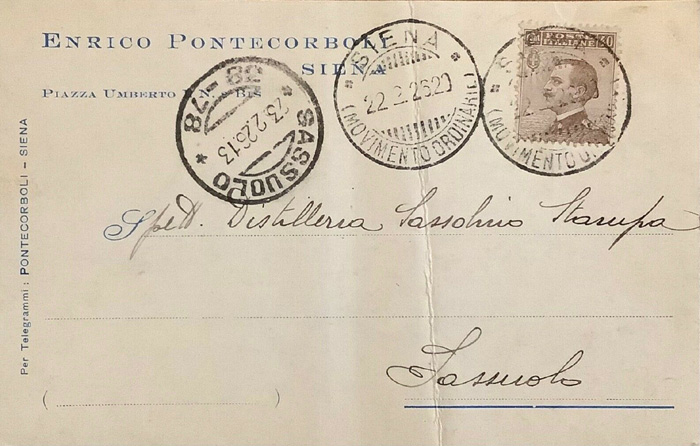 ENRICO PONTECORBOLI
SIENA
PIAZZA UMBERTO I N. BIS
Per Telegrammi: PONTECORBOLI - SIENA
SASSUOLO
23.2.26.13
38-78
SIENA
22.2.26 20
(MOVIMENTO ORDINARIE)
POSTE ITALIANE
30
(MOVIMENTO
Spett. Distilleria Sassolino Stampa
Sassuolo